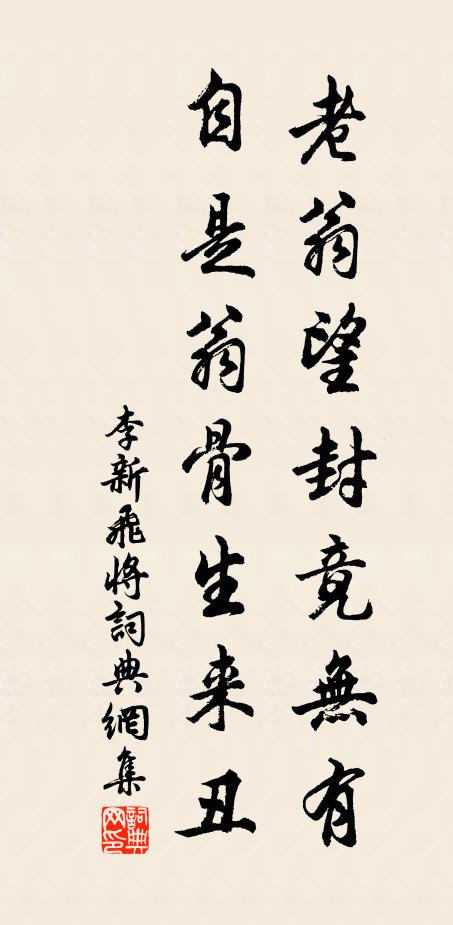 老翁望封竟無有
自是翁骨生来丑
李新飛將詞典網集
詞典網印